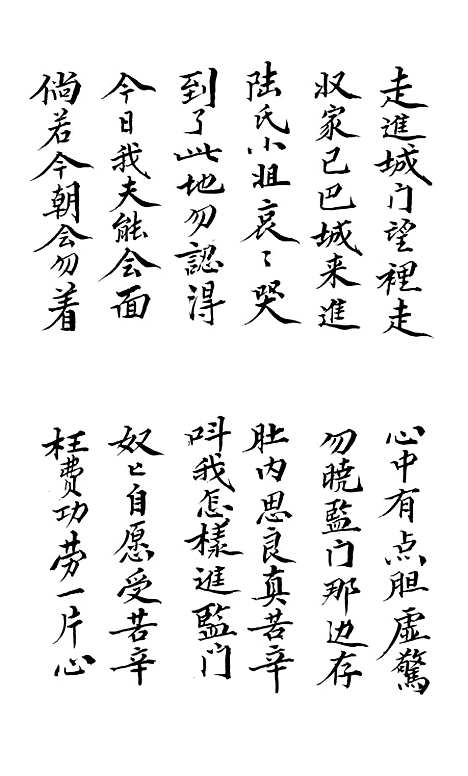 走進城门望裡走
心中有点胆虚驚
収家已巴城来進
勿曉監门那边存
陆氏小姐哀〻哭
肚内思良真苦辛
到了此地勿認得
呌我怎樣進監门
今日我夫能会面
奴匕自愿受苦辛
倘若今朝会勿着
枉費功劳一片心